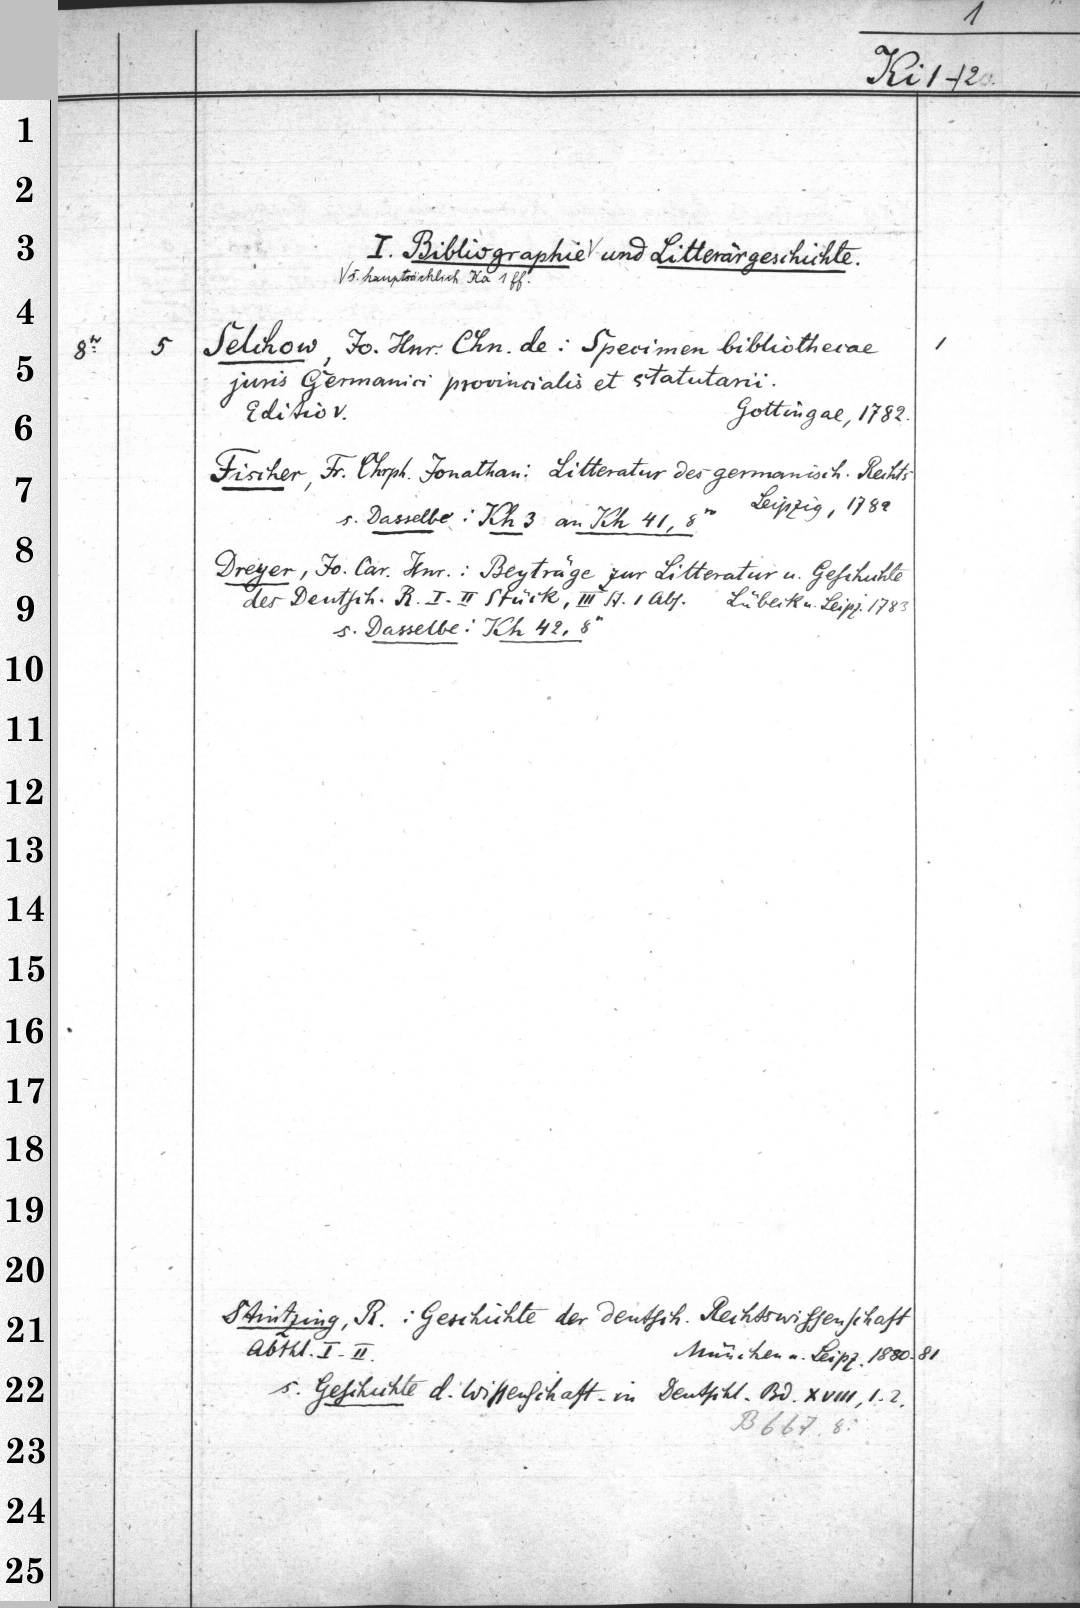 1
Ki 1-12
I. Bibliographie √ und Litterärgeschichte.
√ s. hauptsächlich Ka 1 ff.
8° 5 Selchow, Jo. Hnr. Chn. de : Specimen bibliothecae 1
juris Germanici provincialis et statutarii.
Editio V. Gottingae, 1782.
Fischer, Fr. Chrph. Jonathan: Litteratur des germanisch. Rechts
Leipzig, 1782
s. Dasselbe : Kh 3 an Kh 41, 8°
Dreyer, Jo. Car. Hnr. : Beyträge zur Litteratur u. Geschichte
des Deutsch. R. I-II Stück, III St. 1 Abs. Lübeck u. Leipz. 1783
s. Dasselbe : Kh 42, 8°
Stintzing, R. : Geschichte der deutsch. Rechtswissenschaft
Abthl. I-II. München u. Leipz. 1880-81
s. Geschichte d. Wissenschaft. in Deutschl. Bd. XVIII, 1-2.
B 667. 8°
1
2
3
4
5
6
7
8
9
10
11
12
13
14
15
16
17
18
19
20
21
22
23
24
25